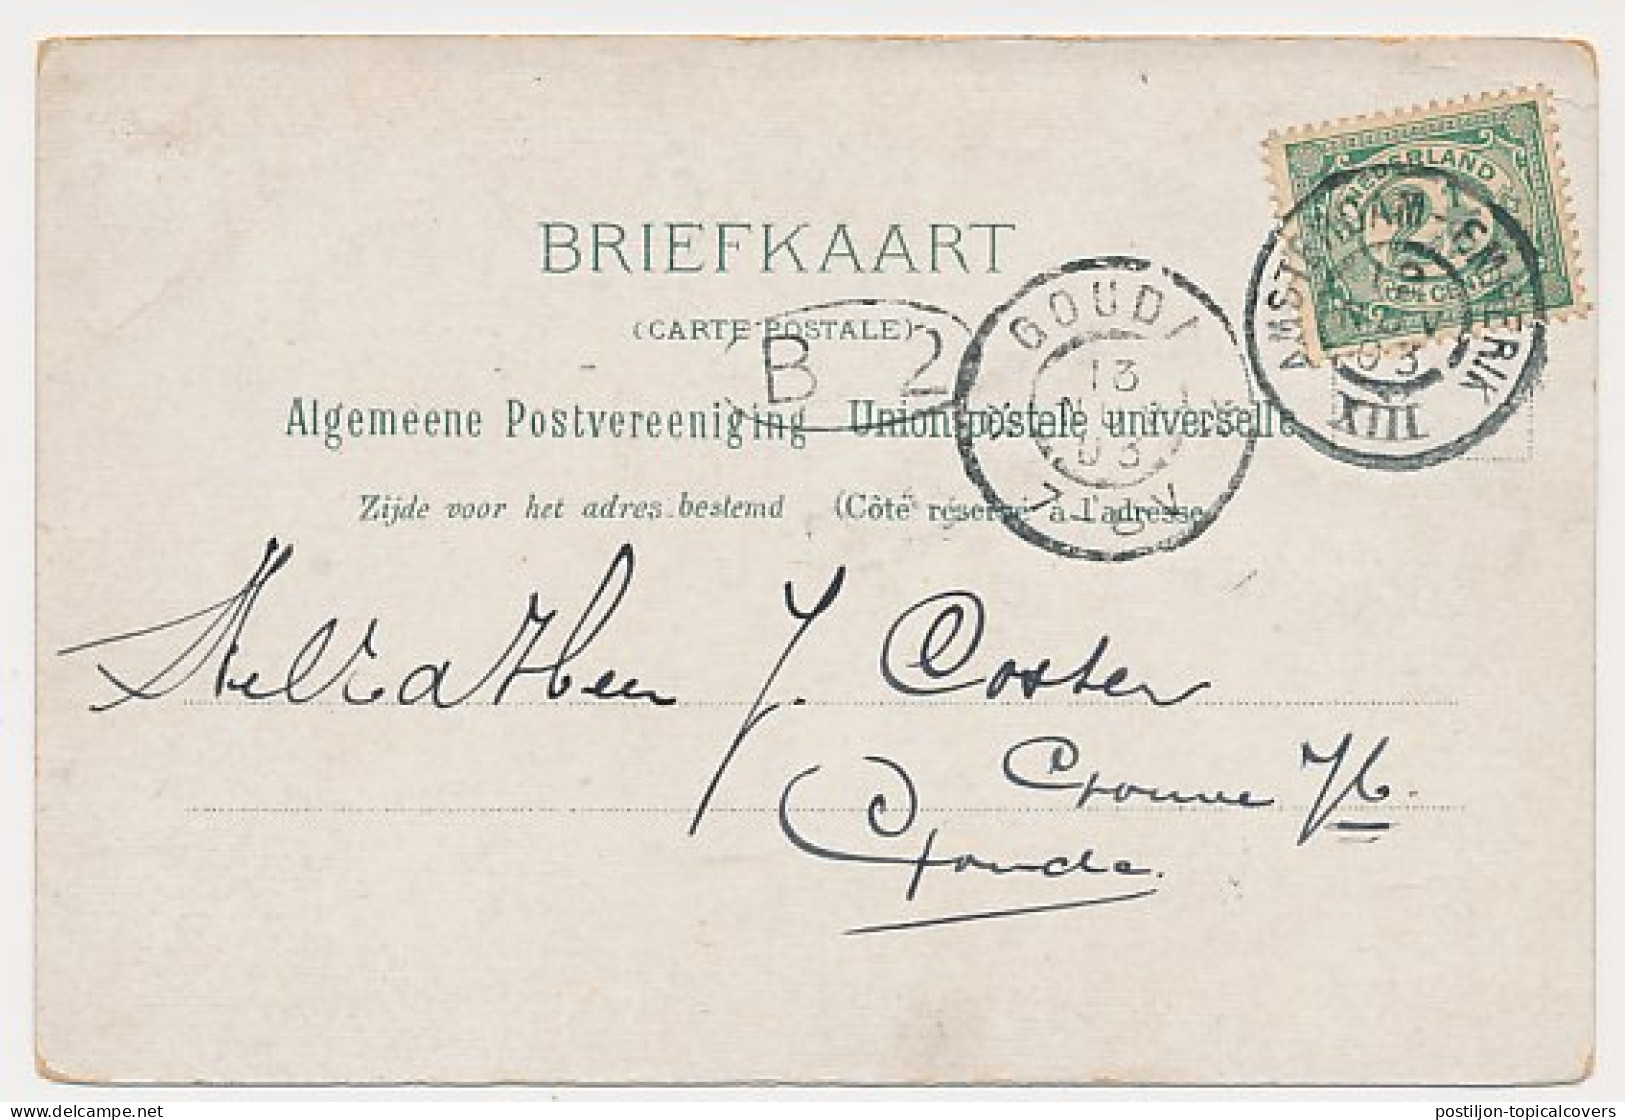 BRIEFKAART
(CARTE POSTALE)
Algemeene Postvereeniging Union postale universelle
Zijde voor het adres bestemd (Côté réservé à l'adresse
NEDERLAND
2 1
CENT
AMSTERDAM-EMMERIK
12
NOV
03
VIII
B 2
GOUDA
13
NOV
03
7-8V
J. Coster
Gouwe
Gouda.
postiljon-topicalcovers
delcampe.net
postiljon-topicalcovers